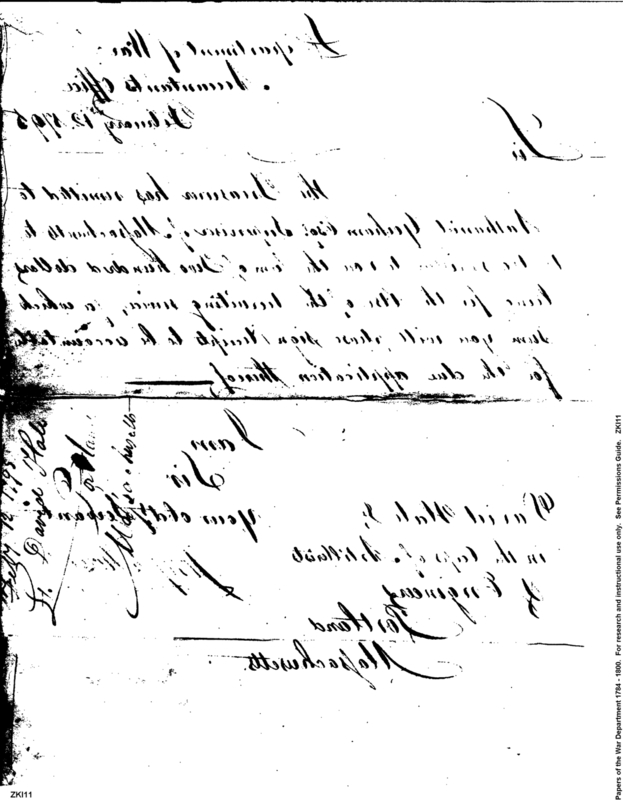 Department of War
Accountants Office
February 12. 1795
Sir
The Treasurer has remitted to
Nathaniel Gorham Esqr Supervisor of Massachusetts to
be to you the Sum of Two hundred dollars
for the Use of the recruiting service, for which
sum you will please sign Receipts to be accountable
for the due application thereof
I am
Sir
Your obdt Servant
David Hale
in the Corps of Artillerists
& Engineers
Portland
Massachusetts
Feby 12 1795
Lt. David Hale
Portland
Massachusetts
Papers of the War Department 1784 - 1800. For research and instructional use only. See Permissions Guide. ZKI11
ZKI11